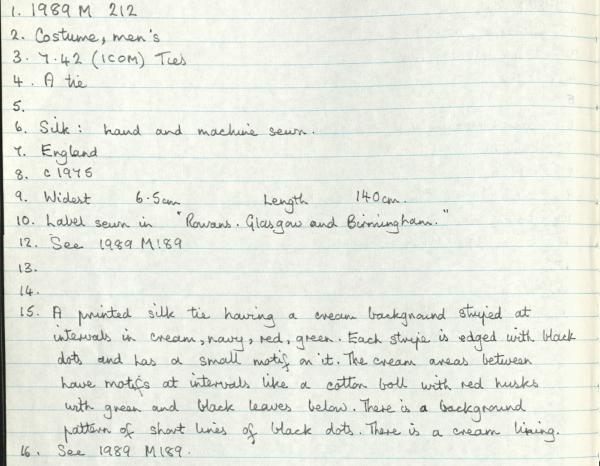 1. 1989 M 212
2. Costume, men's
3. 7.42 (ICOM) Ties
4. A tie
5.
6. Silk: hand and machine sewn.
7. England
8. c 1975
9. Widest 6.5cm Length 140cm.
10. Label sewn in "Rowans. Glasgow and Birmingham."
12. See 1989 M189
13.
14.
15. A printed silk tie having a cream background striped at
intervals in cream, navy, red, green. Each stripe is edged with black
dots and has a small motif on it. The cream areas between
have motifs at intervals like a cotton boll with red husks
with green and black leaves below. There is a background
pattern of short lines of black dots. There is a cream lining.
16. See 1989 M189.